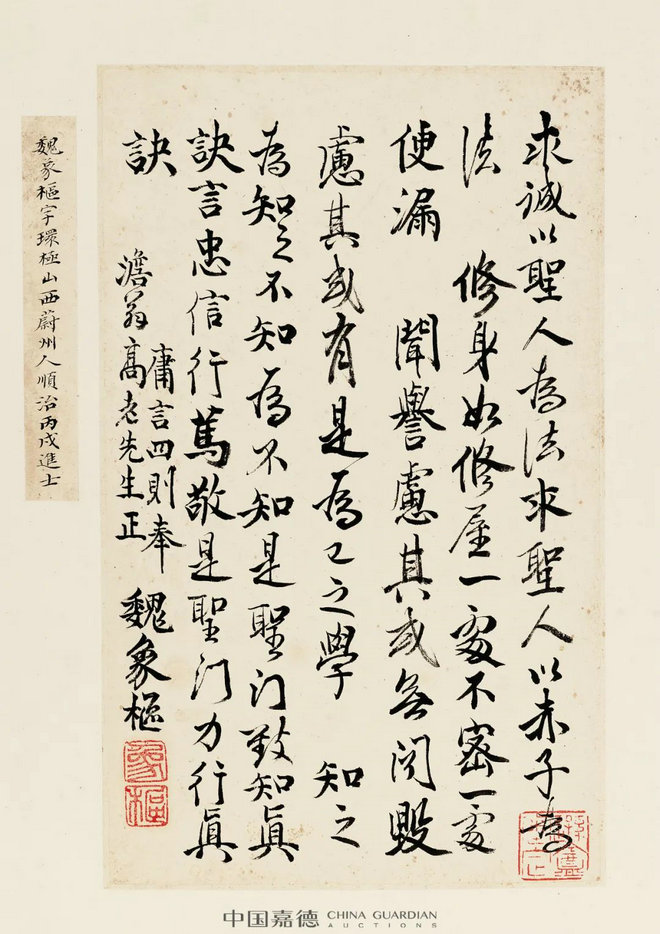 求誠以聖人為法求聖人以赤子為
法　修身如修屋一處不密一處
便漏　聞譽慮其或無聞毀
慮其或有是為己之學　知之
為知之不知為不知是聖门致知真
訣言忠信行篤敬是聖门力行真
訣
庸言四則奉
澹翁高老先生正　魏象樞
象樞
魏象樞字環極山西蔚州人順治丙戌進士
中国嘉德 CHINA GUARDIAN
AUCTIONS